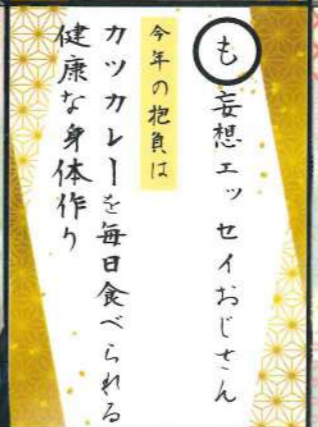 も 妄想エッセイおじさん
今年の抱負は
カツカレーを毎日食べられる
健康な身体作り